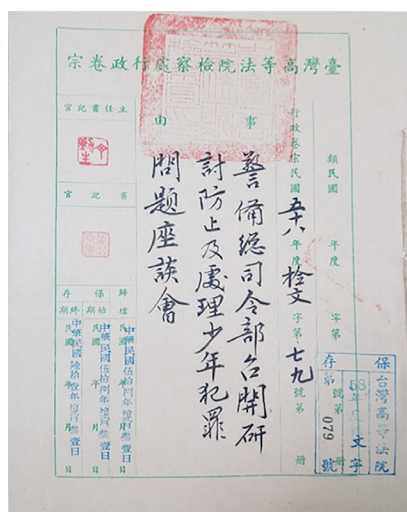 臺灣高等法院檢察處行政卷宗
類民國 年度 字第 號第 冊
行政卷宗民國五十八年度檢文字第七九號第 冊
事由
警備總司令部召開研
討防止及處理少年犯罪
問題座談會
主任書記官
書記官
歸檔
民國 年 月 日
保存
始期
民國 年 月 日
終期
民國 年 月 日
保台灣高等法院
58年度文字
存第079號